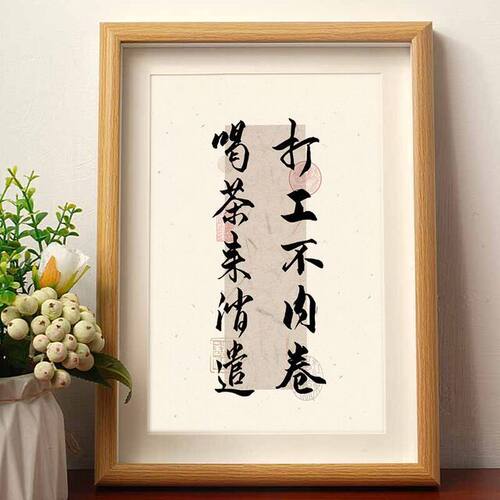 打工不内卷
喝茶来消遣